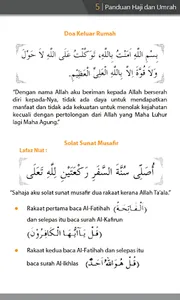 5 | Panduan Haji dan Umrah
Doa Keluar Rumah
بِسْمِ اللَّهِ آمَنْتُ بِاللَّهِ، تَوَكَّلْتُ عَلَى اللَّهِ لَا حَوْلَ
وَلَا قُوَّةَ إِلَّا بِاللَّهِ الْعَلِيِّ الْعَظِيْمِ.
"Dengan nama Allah aku beriman kepada Allah berserah
diri kepada-Nya, tidak ada daya untuk mendapatkan
manfaat dan tidak ada kekuatan untuk menolak kejahatan
kecuali dengan pertolongan dari Allah yang Maha Luhur
lagi Maha Agung."
Solat Sunat Musafir
Lafaz Niat :
أُصَلِّى سُنَّةَ السَّفَرِ رَكْعَتَيْنِ لِلَّهِ تَعَالَى
"Sahaja aku solat sunat musafir dua rakaat kerana Allah Ta'ala."
• Rakaat pertama baca Al-Fatihah (اَلْفَاتِحَةُ)
dan selepas itu surah Al-Kafirun
(قُلْ يَاأَيُّهَا الْكَافِرُوْنَ)
• Rakaat kedua baca Al-Fatihah dan selepas itu
baca surah Al-Ikhlas (قُلْ هُوَ اللَّهُ أَحَدٌ)